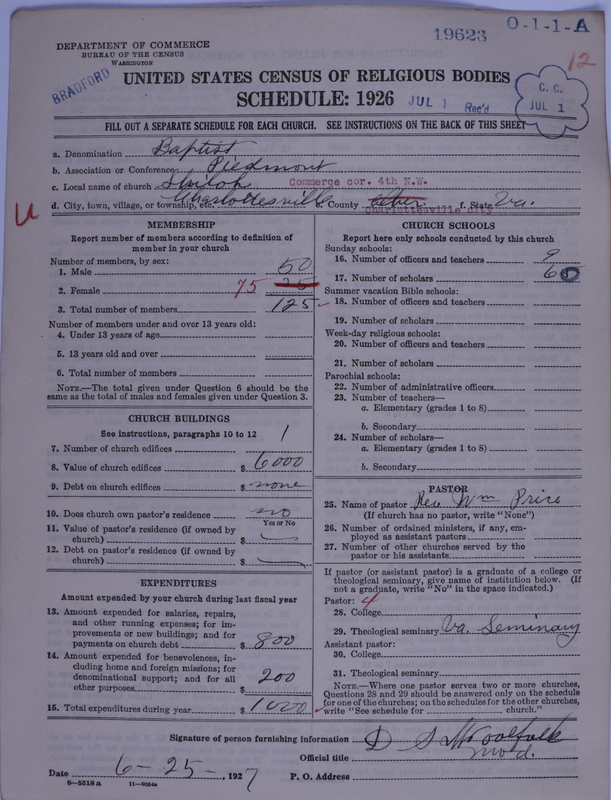 19623
O-1-1-A
DEPARTMENT OF COMMERCE
BUREAU OF THE CENSUS
WASHINGTON
BRADFORD
12
UNITED STATES CENSUS OF RELIGIOUS BODIES
SCHEDULE: 1926
JUL 1 Rec'd
C. C.
JUL 1
FILL OUT A SEPARATE SCHEDULE FOR EACH CHURCH. SEE INSTRUCTIONS ON THE BACK OF THIS SHEET
a. Denomination Baptist
b. Association or Conference Piedmont
c. Local name of church Shiloh Commerce cor. 4th N.W.
d. City, town, village, or township, etc. Charlottesville e. County f. State Va.
Charlottesville city
U
MEMBERSHIP
Report number of members according to definition of member in your church
Number of members, by sex:
1. Male 50
2. Female 75 25
3. Total number of members 125
Number of members under and over 13 years old:
4. Under 13 years of age
5. 13 years old and over
6. Total number of members
NOTE.—The total given under Question 6 should be the same as the total of males and females given under Question 3.
CHURCH BUILDINGS
See instructions, paragraphs 10 to 12
7. Number of church edifices 1
8. Value of church edifices $ 6000
9. Debt on church edifices $ none
10. Does church own pastor's residence no
Yes or No
11. Value of pastor's residence (if owned by church) $
12. Debt on pastor's residence (if owned by church) $
EXPENDITURES
Amount expended by your church during last fiscal year
13. Amount expended for salaries, repairs, and other running expenses; for improvements or new buildings; and for payments on church debt $ 800
14. Amount expended for benevolences, including home and foreign missions; for denominational support; and for all other purposes $ 200
15. Total expenditures during year $ 1000
CHURCH SCHOOLS
Report here only schools conducted by this church
Sunday schools:
16. Number of officers and teachers 9
17. Number of scholars 60
Summer vacation Bible schools:
18. Number of officers and teachers
19. Number of scholars
Week-day religious schools:
20. Number of officers and teachers
21. Number of scholars
Parochial schools:
22. Number of administrative officers
23. Number of teachers—
a. Elementary (grades 1 to 8)
b. Secondary
24. Number of scholars—
a. Elementary (grades 1 to 8)
b. Secondary
PASTOR
25. Name of pastor Rev Wm Price
(If church has no pastor, write "None")
26. Number of ordained ministers, if any, employed as assistant pastors
27. Number of other churches served by the pastor or his assistants
If pastor (or assistant pastor) is a graduate of a college or theological seminary, give name of institution below. (If not a graduate, write "No" in the space indicated.)
Pastor: 4
28. College
29. Theological seminary Va. Seminary
Assistant pastor:
30. College
31. Theological seminary
NOTE.—Where one pastor serves two or more churches, Questions 28 and 29 should be answered only on the schedule for one of the churches; on the schedules for the other churches, write "See schedule for church."
Signature of person furnishing information D S Woolfolk
Official title Mod.
Date 6-25-, 1927 P. O. Address
8-5518a 11-9264a